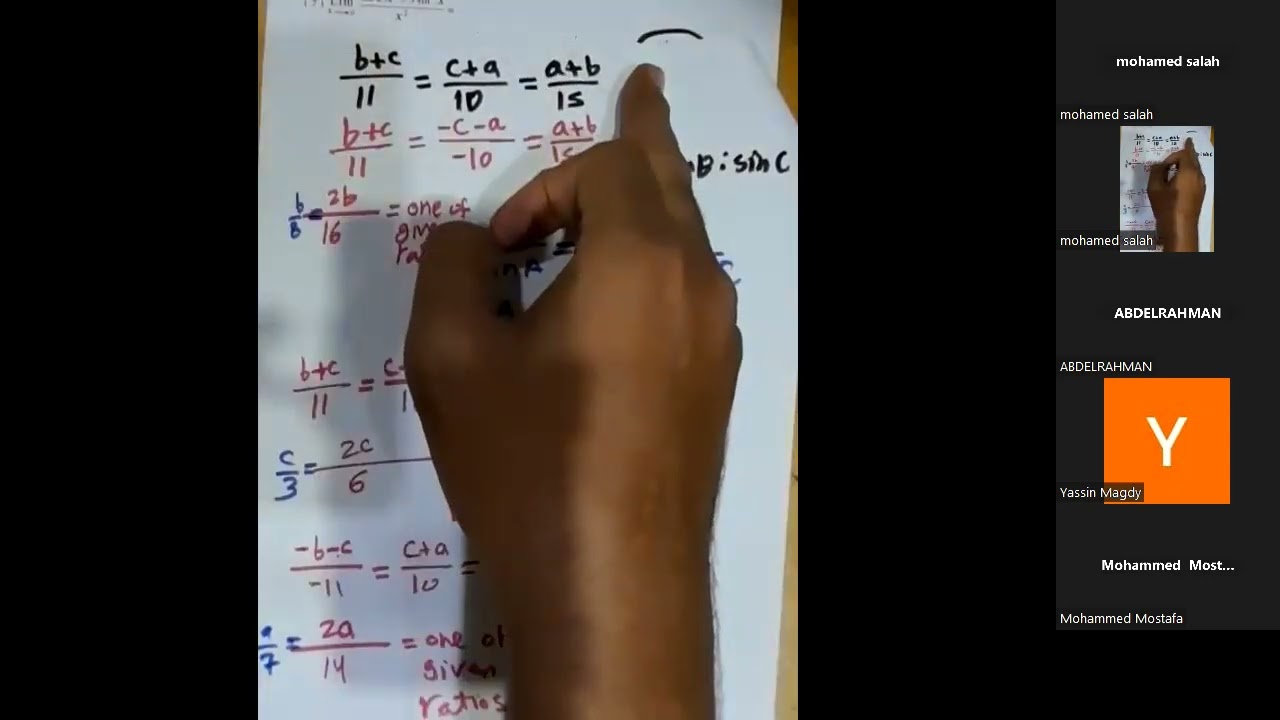 b+c/11 = c+a/10 = a+b/15
b+c/11 = -c-a/-10 = a+b/15
B : sin C
b/8 = 2b/16 = one of
b+c/11 =
c/3 = 2c/6
-b-c/-11 = c+a/10 =
a/7 = 2a/14 = one of
given
ratios
mohamed salah
mohamed salah
mohamed salah
ABDELRAHMAN
ABDELRAHMAN
Y
Yassin Magdy
Mohammed Most...
Mohammed Mostafa